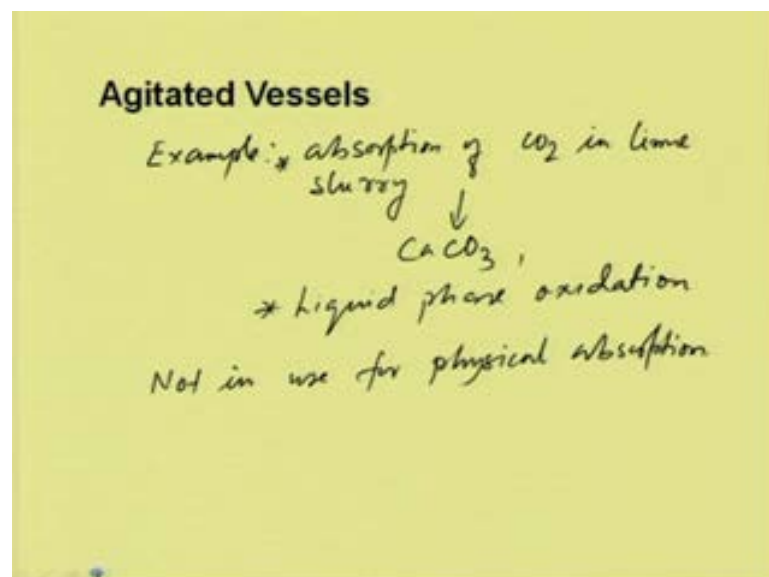 Agitated Vessels
Example: * absorption of CO2 in lime
slurry
↓
CaCO3,
* Liquid phase oxidation
Not in use for physical absorption